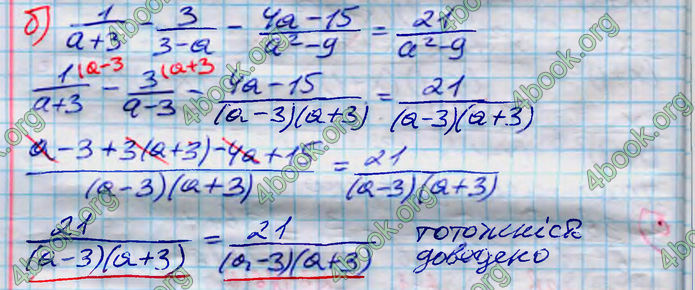 б) 1/(a+3) - 3/(3-a) - (4a-15)/(a²-9) = 21/(a²-9)
1(a-3/(a+3) - 3(a+3/(a-3) - (4a-15)/((a-3)(a+3)) = 21/((a-3)(a+3))
(a-3+3(a+3)-4a+15)/((a-3)(a+3)) = 21/((a-3)(a+3))
21/((a-3)(a+3)) = 21/((a-3)(a+3)) тотожність
доведено
4book.org